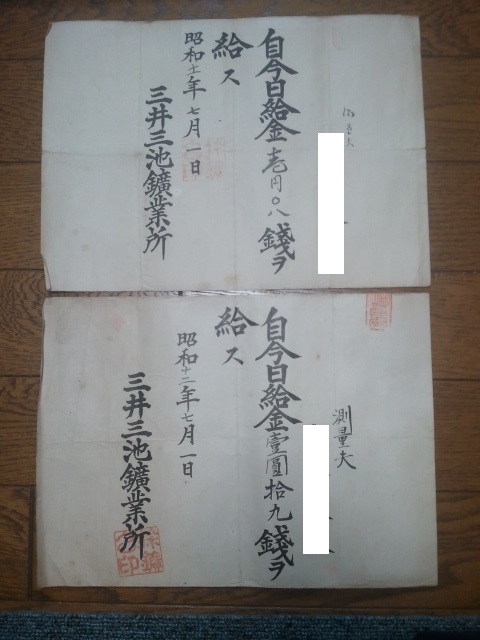 測量夫
自今日給金壱円〇八錢ヲ
給ス
昭和十一年七月一日
三井三池鑛業所
測量夫
自今日給金壹圓拾九錢ヲ
給ス
昭和十二年七月一日
三井三池鑛業所